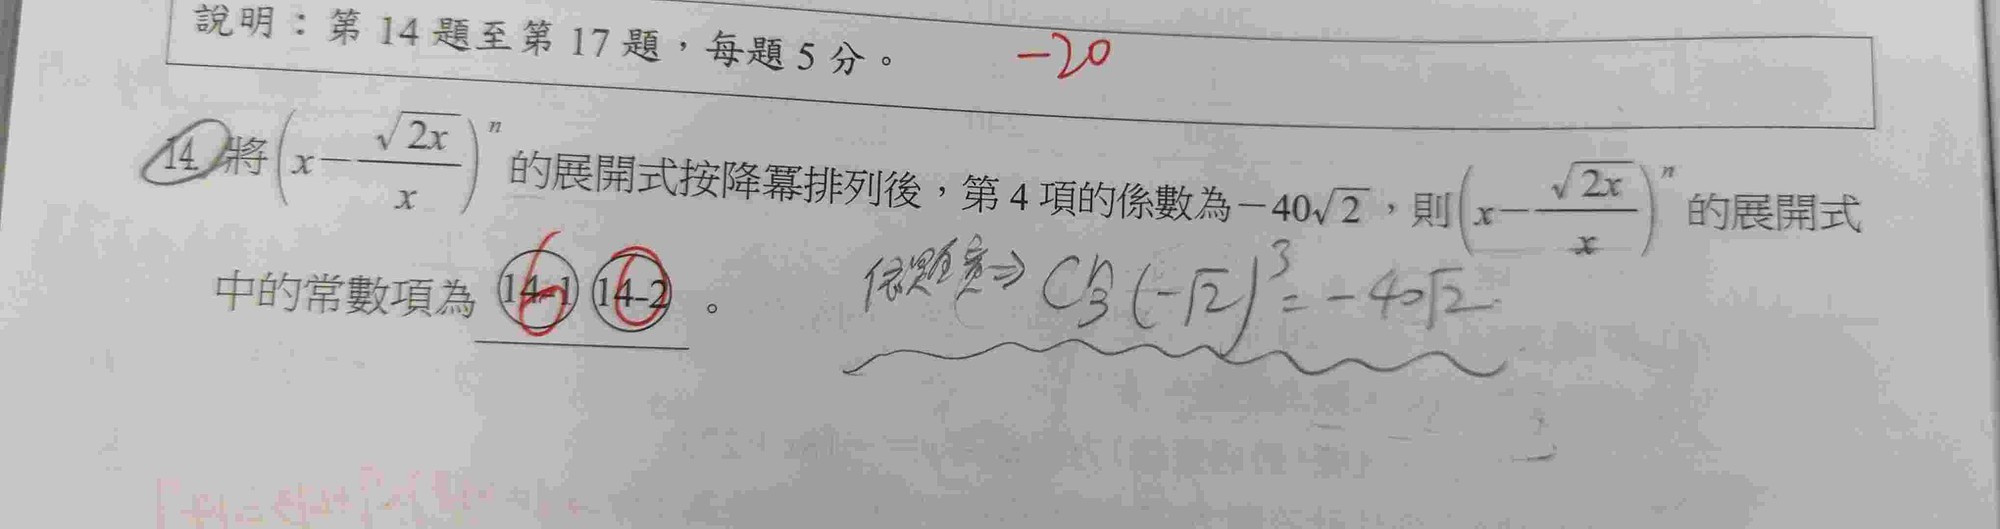 說明：第 14 題至第 17 題，每題 5 分。 -20
14. 將(x-√2x/x)ⁿ的展開式按降冪排列後，第 4 項的係數為-40√2，則(x-√2x/x)ⁿ的展開式
中的常數項為 14-1 14-2 。 依題意⇒ Cⁿ₃(-√2)³=-40√2